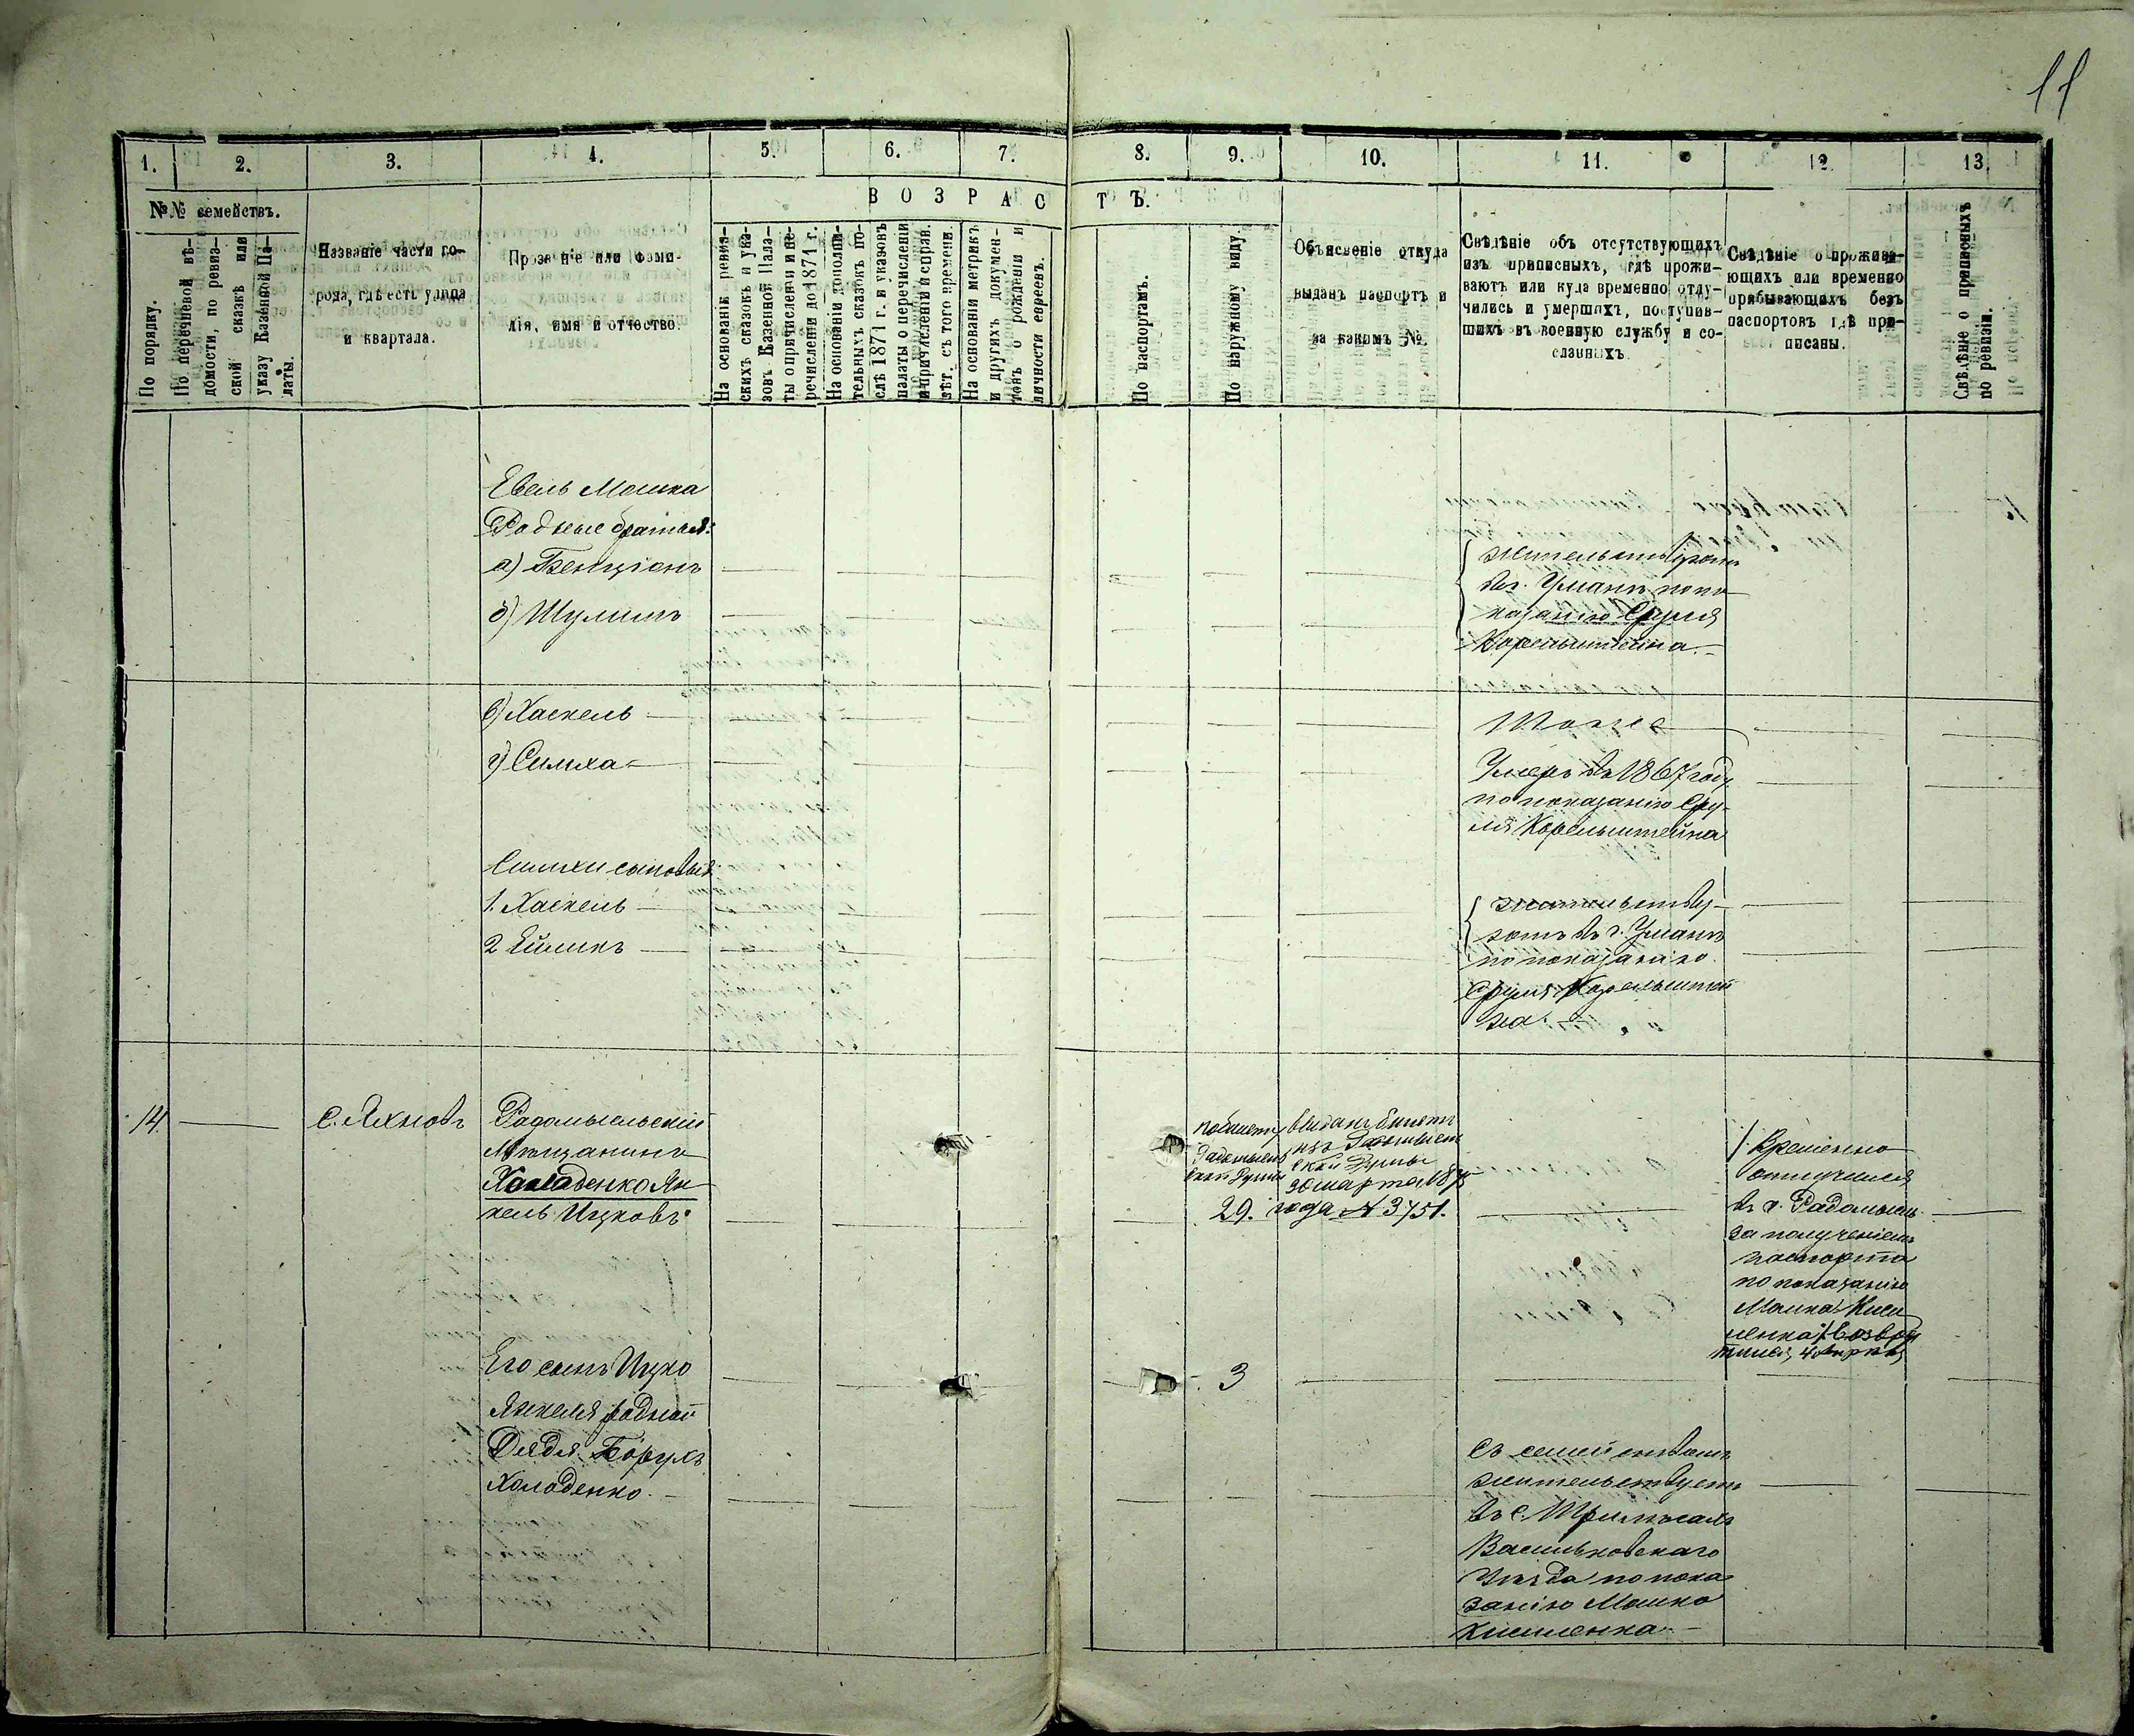 11
1. 2. 3. 4. 5. 6. 7. 8. 9. 10. 11. 12. 13.
№№ семействъ.
По порядку.
По перечневой вѣ-
домости, по ревиз-
ской сказкѣ или
указу Казенной Па-
латы.
Названіе части го-
рода, гдѣ есть улица
и квартала.
Прозваніе или фами-
лія, имя и отчество.
ВОЗРАСТЪ.
На основаніи ревиз-
скихъ сказокъ и ука-
зовъ Казенной Пала-
ты о причисленіи и пе-
речисленіи до 1871 г.
На основаніи дополни-
тельныхъ сказокъ по-
слѣ 1871 г. и указовъ
палаты о перечисленіи
и причисленіи и справ.
лѣт. съ того времени.
На основаніи метрикъ
и другихъ докумен-
товъ о рожденіи и
личности евреевъ.
По паспортамъ.
По наружному виду.
Объясненіе откуда
выданъ паспортъ и
за какимъ №.
Свѣдѣніе объ отсутствующихъ
изъ приписныхъ, гдѣ прожи-
ваютъ или куда временно отлу-
чились и умершихъ, поступив-
шихъ въ военную службу и со-
сланныхъ.
Свѣдѣніе о прожива-
ющихъ или временно
прибывающихъ безъ
паспортовъ гдѣ при-
писаны.
Свѣдѣніе о приписныхъ
по ревизіи.
Евель Мошка
Родные братья:
а) Бенціонъ
б) Шулимъ
жительствуютъ
въ г. Умани по по-
казанію Сруля
Корельштейна.
в) Хаскель
Тоже
г) Симха
Умеръ въ 1867 году
по показанію Сру-
ля Корельштейна
Симхи сыновья
1. Хаскель
2
жительству-
ютъ въ г. Умани
по показанію
Сруля Корельштей
на.
14.
С. Яхновъ
Радомысльскій
Мѣщанинъ
Холоденко Ян
кель Ицковъ
по билету
Радомысль
ской Думы
29.
выданъ билетъ
изъ Радомысль
ской Думы
30 марта 1875
года № 3751.
Временно
отлучился
въ г. Радомысль
за полученіемъ
паспорта
по показанію
Мошка Киси
ленка
Его сынъ Ицко
3
Янкеля родной
Дядя Борухъ
Холоденко.
Съ семействомъ
жительствуетъ
въ с. Трилѣсахъ
Васильковскаго
Уѣзда по пока
занію Мошко
Кисиленка.